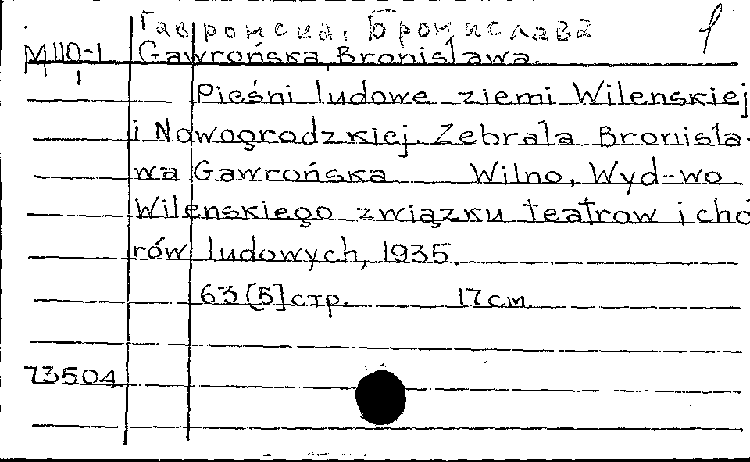 Гавронсиа, Бронислава
М110-1 Gawrońska, Bronisława.
1
Pieśni ludowe ziemi Wilenskiej
i Nowogrodzkiej. Zebrała Bronisła-
wa Gawrońska Wilno, Wyd-wo
Wilenskiego związku teatrow i chó
rów ludowych, 1935.
63 [5] стр. 17 см.
73504